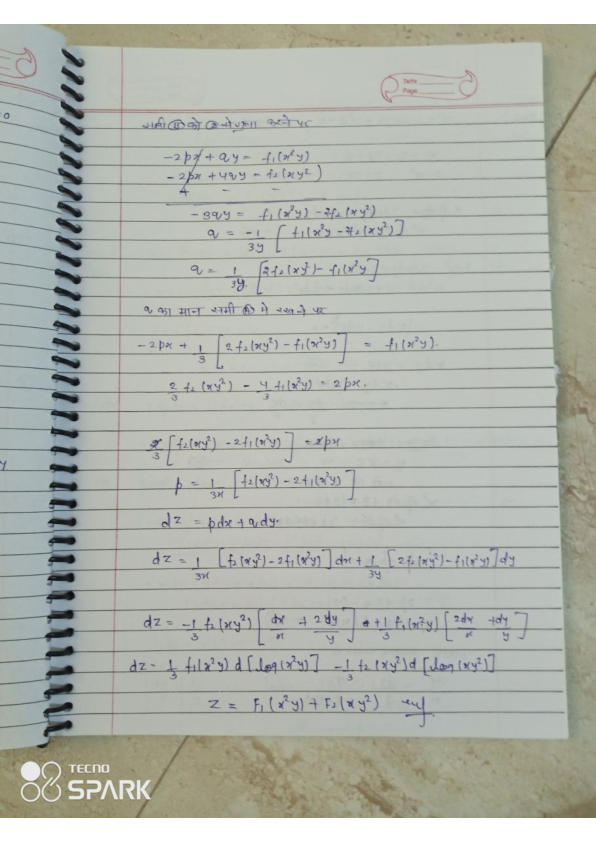 Date
Page
समी (ii) को 2 से गुणा करने पर
-2px + qy = f₁(x²y)
-2px + 4qy = 2f₂(xy²)
+ - -
-3qy = f₁(x²y) - 2f₂(xy²)
q = -1/3y [f₁(x²y - 2f₂(xy²)]
q = 1/3y [2f₂(xy²) - f₁(x²y]
q का मान समी में रखने पर
-2px + 1/3 [2f₂(xy²) - f₁(x²y)] = f₁(x²y).
2/3 f₂(xy²) - 4/3 f₁(x²y) = 2px.
2/3 [f₂(xy²) - 2f₁(x²y)] = 2px
p = 1/3x [f₂(xy²) - 2f₁(x²y)]
dz = pdx + qdy.
dz = 1/3x [f₂(xy²) - 2f₁(x²y)] dx + 1/3y [2f₂(xy²) - f₁(x²y)] dy
dz = -1/3 f₂(xy²) [dx/x + 2dy/y] + 1/3 f₁(x²y) [2dx/x + dy/y]
dz = 1/3 f₁(x²y) d[log(x²y)] - 1/3 f₂(xy²) d[log(xy²)]
z = F₁(x²y) + F₂(xy²)
TECNO
SPARK